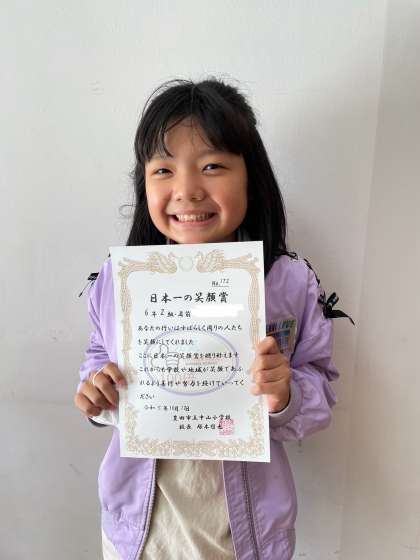 No. 172
日本一の笑顔賞
6年2組・名前
あなたの行いはすばらしく周りの人たち
を笑顔にしてくれました
ここに日本一の笑顔賞を贈り称えます
これからも学校や地域が笑顔であふ
れるよう善行や努力を続けていってく
ださい
令和5年10月
豊田市立中山小学校
校長